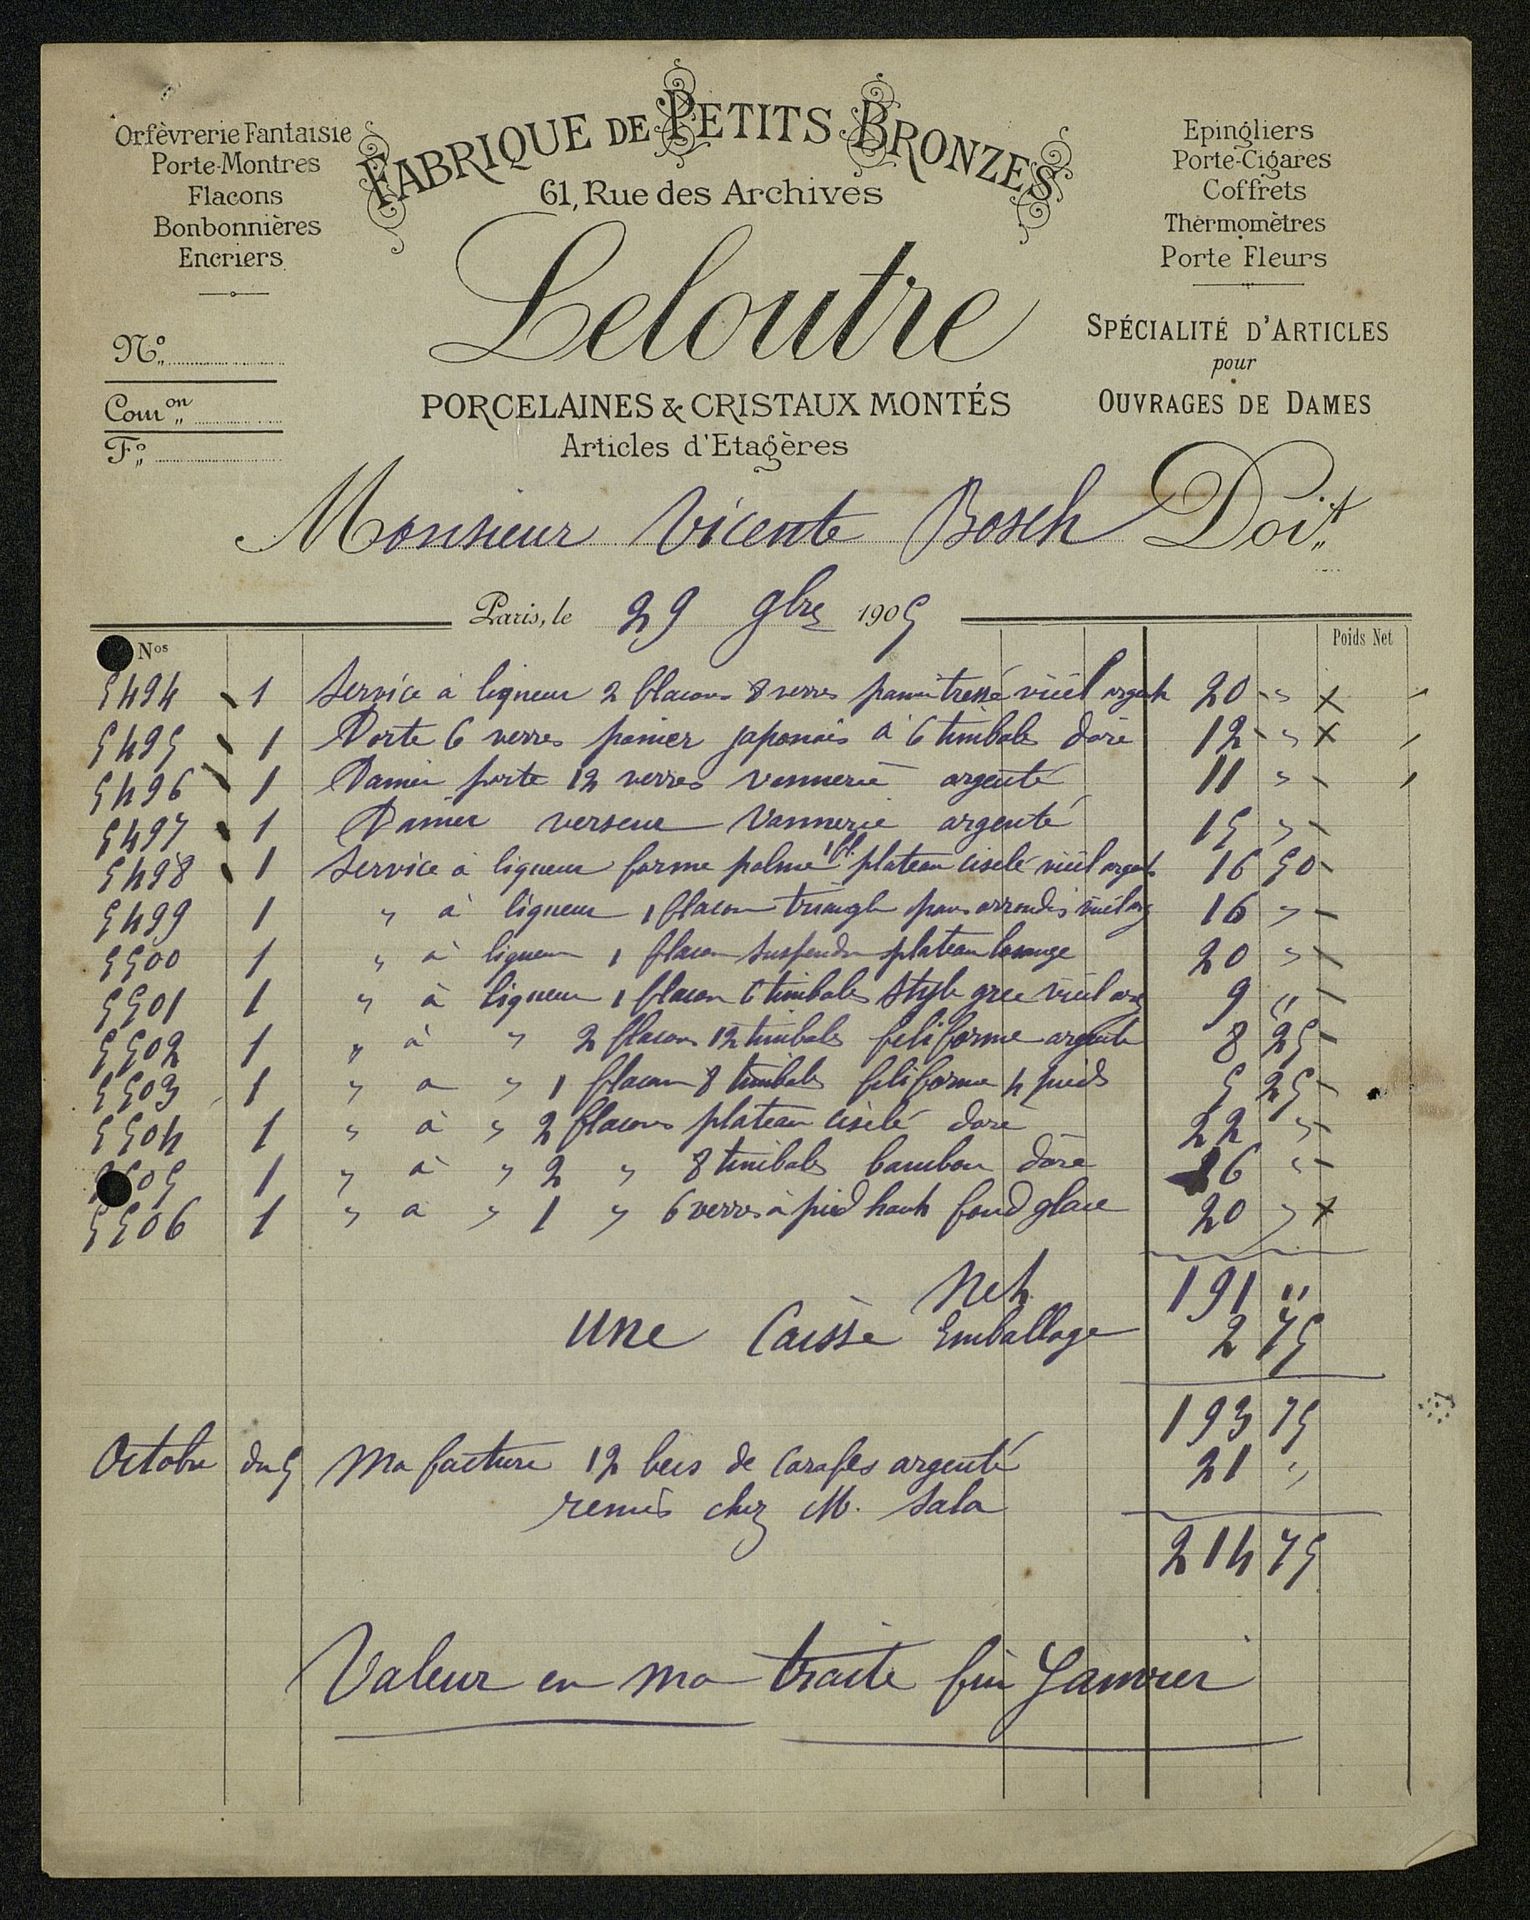 Orfèvrerie Fantaisie
Porte-Montres
Flacons
Bonbonnières
Encriers
FABRIQUE DE PETITS BRONZES
61, Rue des Archives
Leloutre
PORCELAINES & CRISTAUX MONTÉS
Articles d'Etagères
Epingliers
Porte-Cigares
Coffrets
Thermomètres
Porte Fleurs
SPÉCIALITÉ D'ARTICLES
pour
OUVRAGES DE DAMES
No
Com.on
Fo
Monsieur Vicente Bosch Doit
Paris, le 29 9bre 1905
Nos Poids Net
5494 1 Service à liqueur 2 flacons 8 verres panier tressé vieil argent 20 "
5495 1 Porte 6 verres panier japonais à 6 timbales doré 12 "
5496 1 Panier porte 12 verres vannerie argenté 11 "
5497 1 Panier verseur Vannerie argenté 15 "
5498 1 Service à liqueur forme palme 1 fl. plateau ciselé vieil argent 16 50
5499 1 " à liqueur 1 flacon triangle pans arrondis vieil arg 16 "
5500 1 " à liqueur 1 flacon suspendu plateau losange 20 "
5501 1 " à liqueur 1 flacon 6 timbales style grec vieil arg 9 "
5502 1 " à " 2 flacons 12 timbales filiforme argenté 8 25
5503 1 " à " 1 flacon 8 timbales filiforme 4 pieds 5 25
5504 1 " à " 2 flacons plateau ciselé doré 22 "
5505 1 " à " 2 " 8 timbales bambou doré 16 "
5506 1 " à " 1 " 6 verres à pied haut fond glace 20 "
Net 191 "
une Caisse Emballage 2 75
193 75
Octobre du 5 Ma facture 12 becs de Carafes argenté 21 "
remis chez M. Sala
214 75
Valeur en ma traite fin Janvier